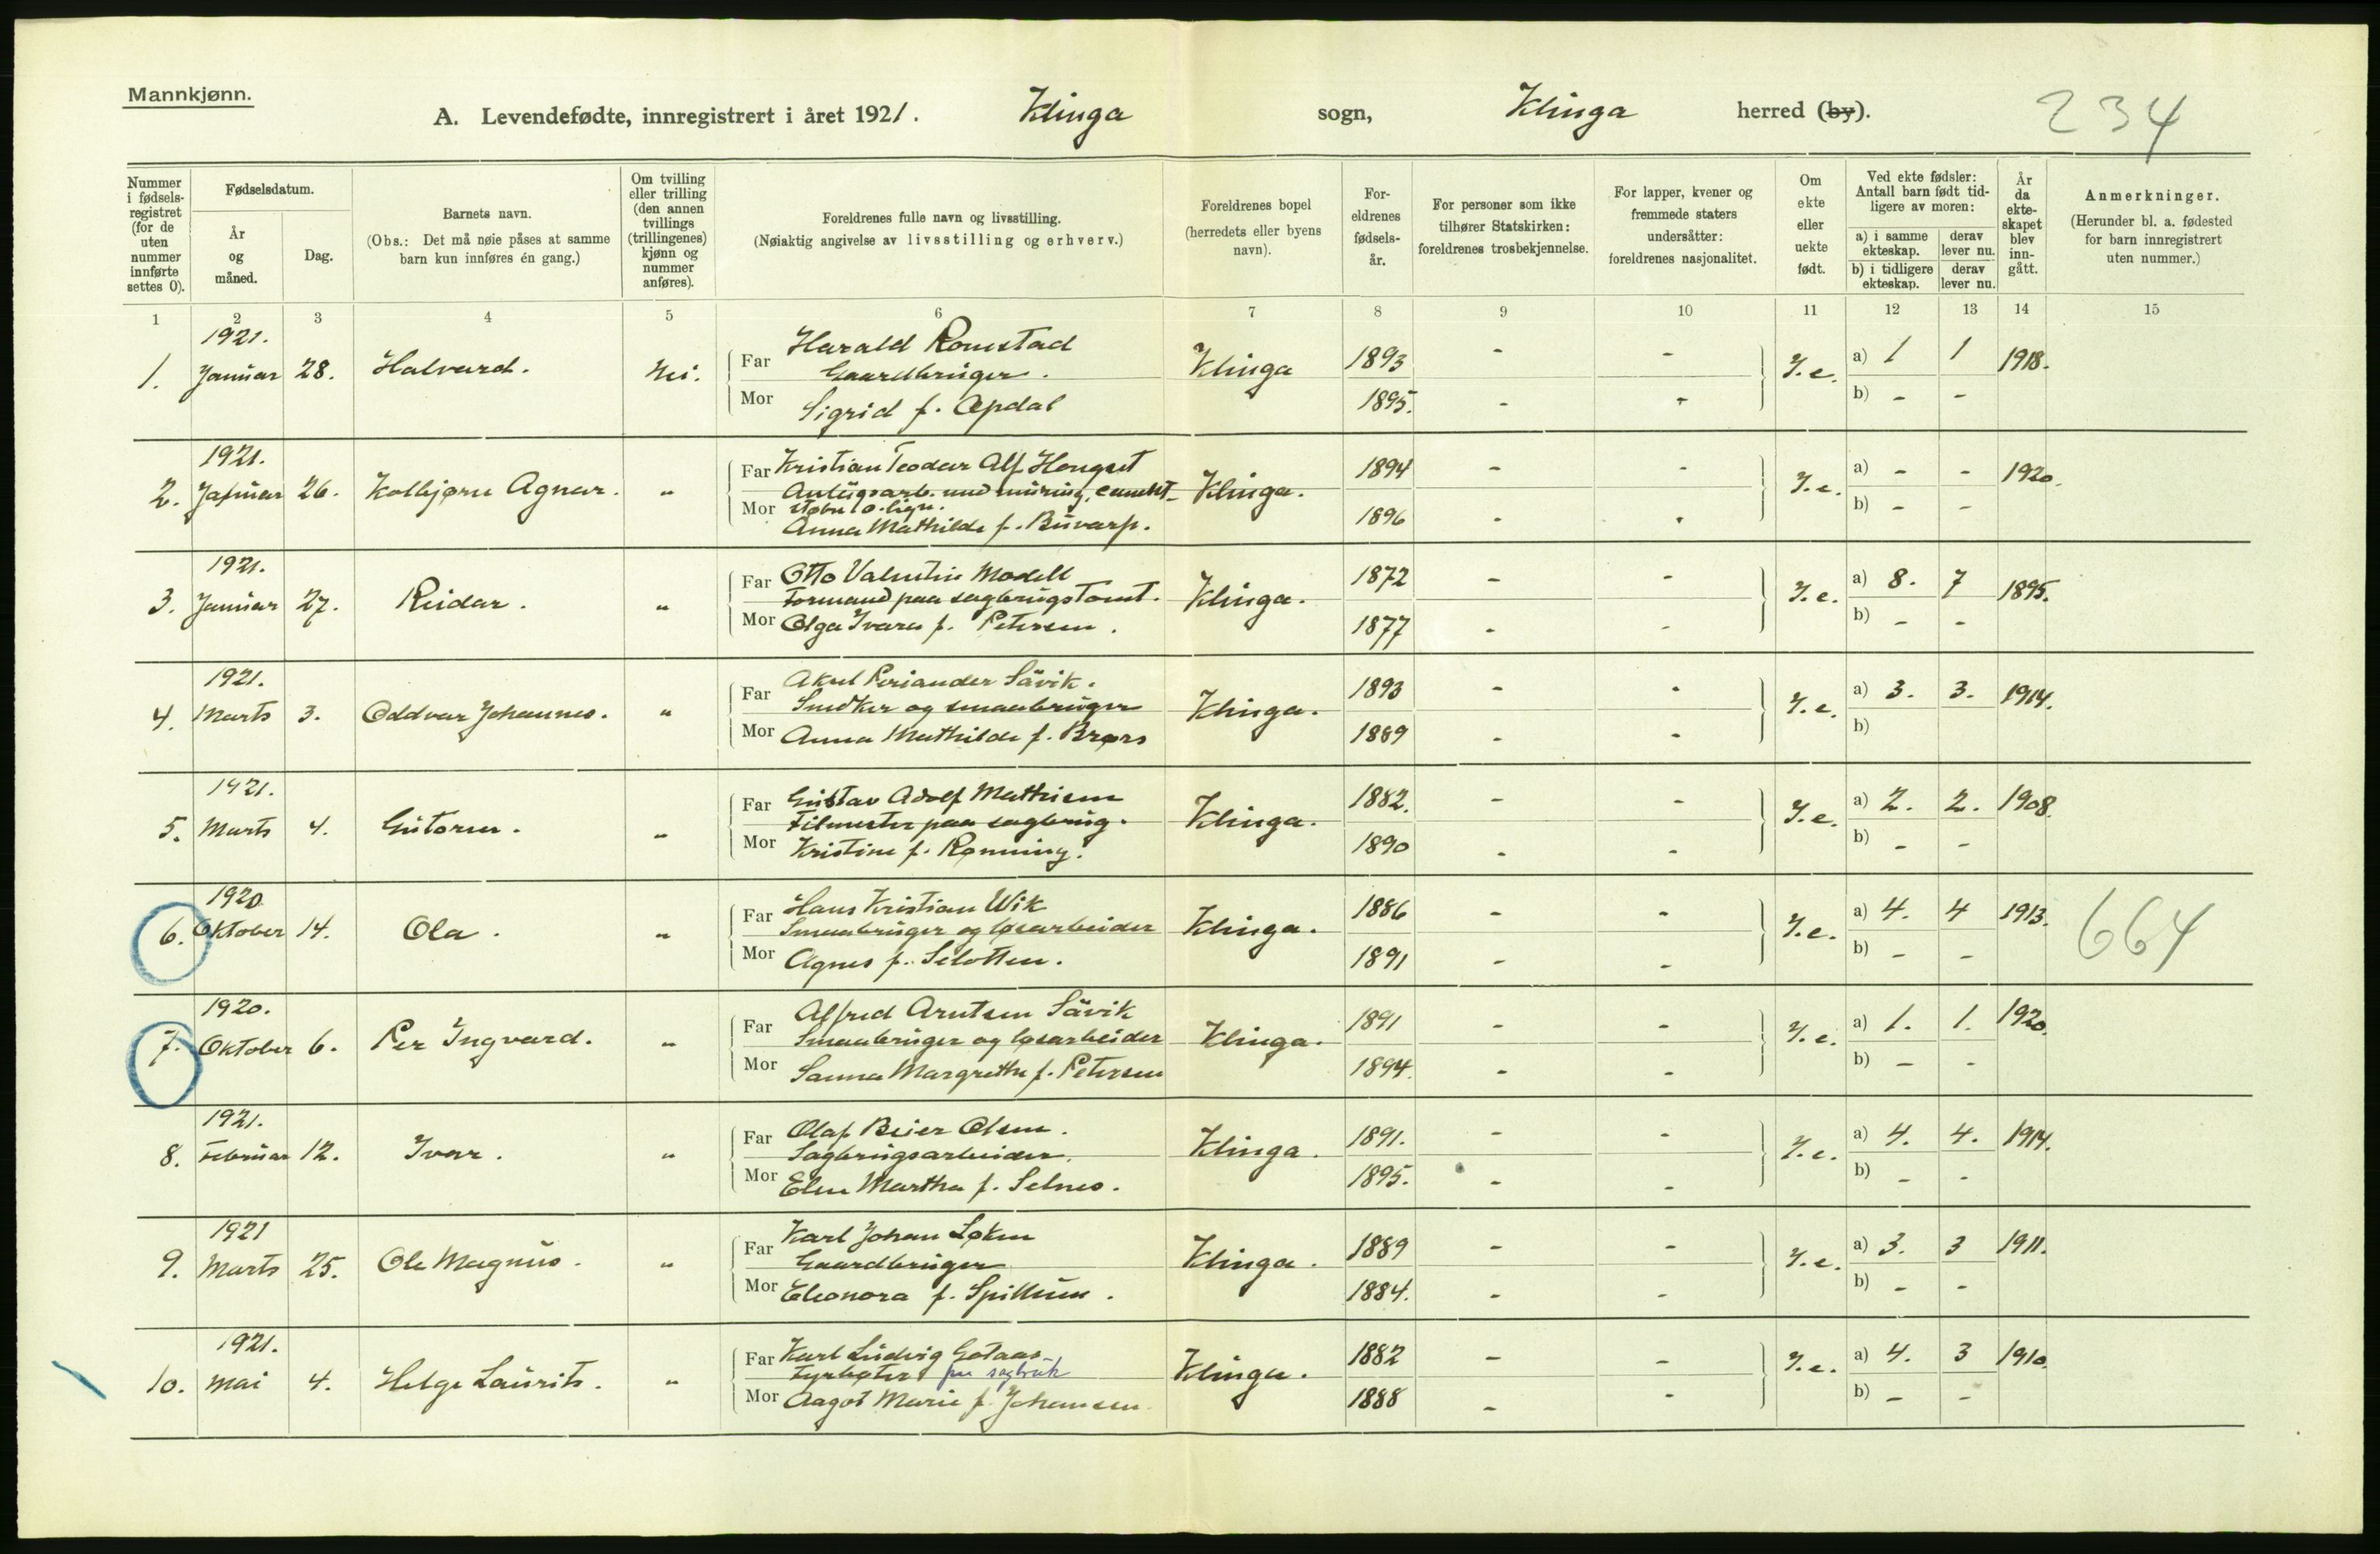 Mannkjønn.
A. Levendefødte, innregistrert i året 1921. Klinga sogn, Klinga herred (by). 234
Nummer i fødsels-registret (for de uten nummer innførte settes 0).
Fødselsdatum.
År og måned.
Dag.
Barnets navn.
(Obs.: Det må nøie påses at samme barn kun innføres én gang.)
Om tvilling eller trilling (den annen tvillings (trillingenes) kjønn og nummer anføres).
Foreldrenes fulle navn og livsstilling.
(Nøiaktig angivelse av livsstilling og erhverv.)
Foreldrenes bopel (herredets eller byens navn).
For-eldrenes fødsels-år.
For personer som ikke tilhører Statskirken: foreldrenes trosbekjennelse.
For lapper, kvener og fremmede staters undersåtter: foreldrenes nasjonalitet.
Om ekte eller uekte født.
Ved ekte fødsler: Antall barn født tid-ligere av moren:
a) i samme ekteskap. derav lever nu.
b) i tidligere ekteskap. derav lever nu.
År da ekte-skapet blev inn-gått.
Anmerkninger.
(Herunder bl. a. fødested for barn innregistrert uten nummer.)
1 2 3 4 5 6 7 8 9 10 11 12 13 14 15
1921.
1. Januar 28. Halvard. Nei. Far Harald Romstad Klinga 1893 - - I.e. a) 1 1 1918.
Gaardbruger.
Mor Sigrid f. Opdal 1895. - - b) - -
1921.
2. Januar 26. Kolbjørn Agnar. " Far Kristian Teodor Alf Hongset Klinga. 1894 - - I.e. a) - - 1920.
Mor Anna Mathilde f. Buvarp. 1896 - - b) - -
1921.
3. Januar 27. Reidar. " Far Otto Valentin Modell Klinga. 1872 - - I.e. a) 8. 7 1895.
Formand paa sagbrugstomt.
Mor Olga Ivara f. Petersen. 1877 - - b) - -
1921.
4. Marts 3. Oddvar Johannes. " Far Aksel Periander Sävik. Klinga. 1893 - - I.e. a) 3. 3. 1914.
Snedker og smaabruger
Mor Anna Mathilde f. Brørs 1889 - - b)
1921.
5. Marts 4. Gutorm. " Far Gustav Adolf Mathisen Klinga. 1882. - - I.e. a) 2. 2. 1908.
Filmester paa sagbrug.
Mor Kristine f. Rønning. 1890 - - b) - -
1920
6. Oktober 14. Ola. " Far Hans Kristian Wik Klinga. 1886 - - I.e. a) 4. 4 1913. 664
Smaabruger og løsarbeider
Mor Agnes f. Slotten. 1891 - - b) - -
1920.
7. Oktober 6. Per Ingvard. " Far Alfred Arntsen Sävik Klinga. 1891 - - I.e. a) 1. 1. 1920.
Smaabruger og løsarbeider
Mor Sanna Margrethe f. Petersen 1894. - - b) - -
1921.
8. Februar 12. Ivar. " Far Olaf Beier Olsen. Klinga. 1891. - - I.e. a) 4. 4. 1914.
Sagbrugsarbeider.
Mor Elen Martha f. Selnes. 1895. - - b) - -
1921
9. Marts 25. Ole Magnus. " Far Karl Johan Løken Klinga. 1889 - - I.e. a) 3. 3 1911.
Gaardbruger
Mor Eleonora f. Spillum. 1884. - - b) - -
1921.
10. Mai 4. Helge Laurits. " Far Karl Ludvig Gotaas Klinga. 1882 - - I.e. a) 4. 3 1910.
Fyrbøter på sagbruk
Mor Aagot Marie f. Johansen 1888 - - b) - -